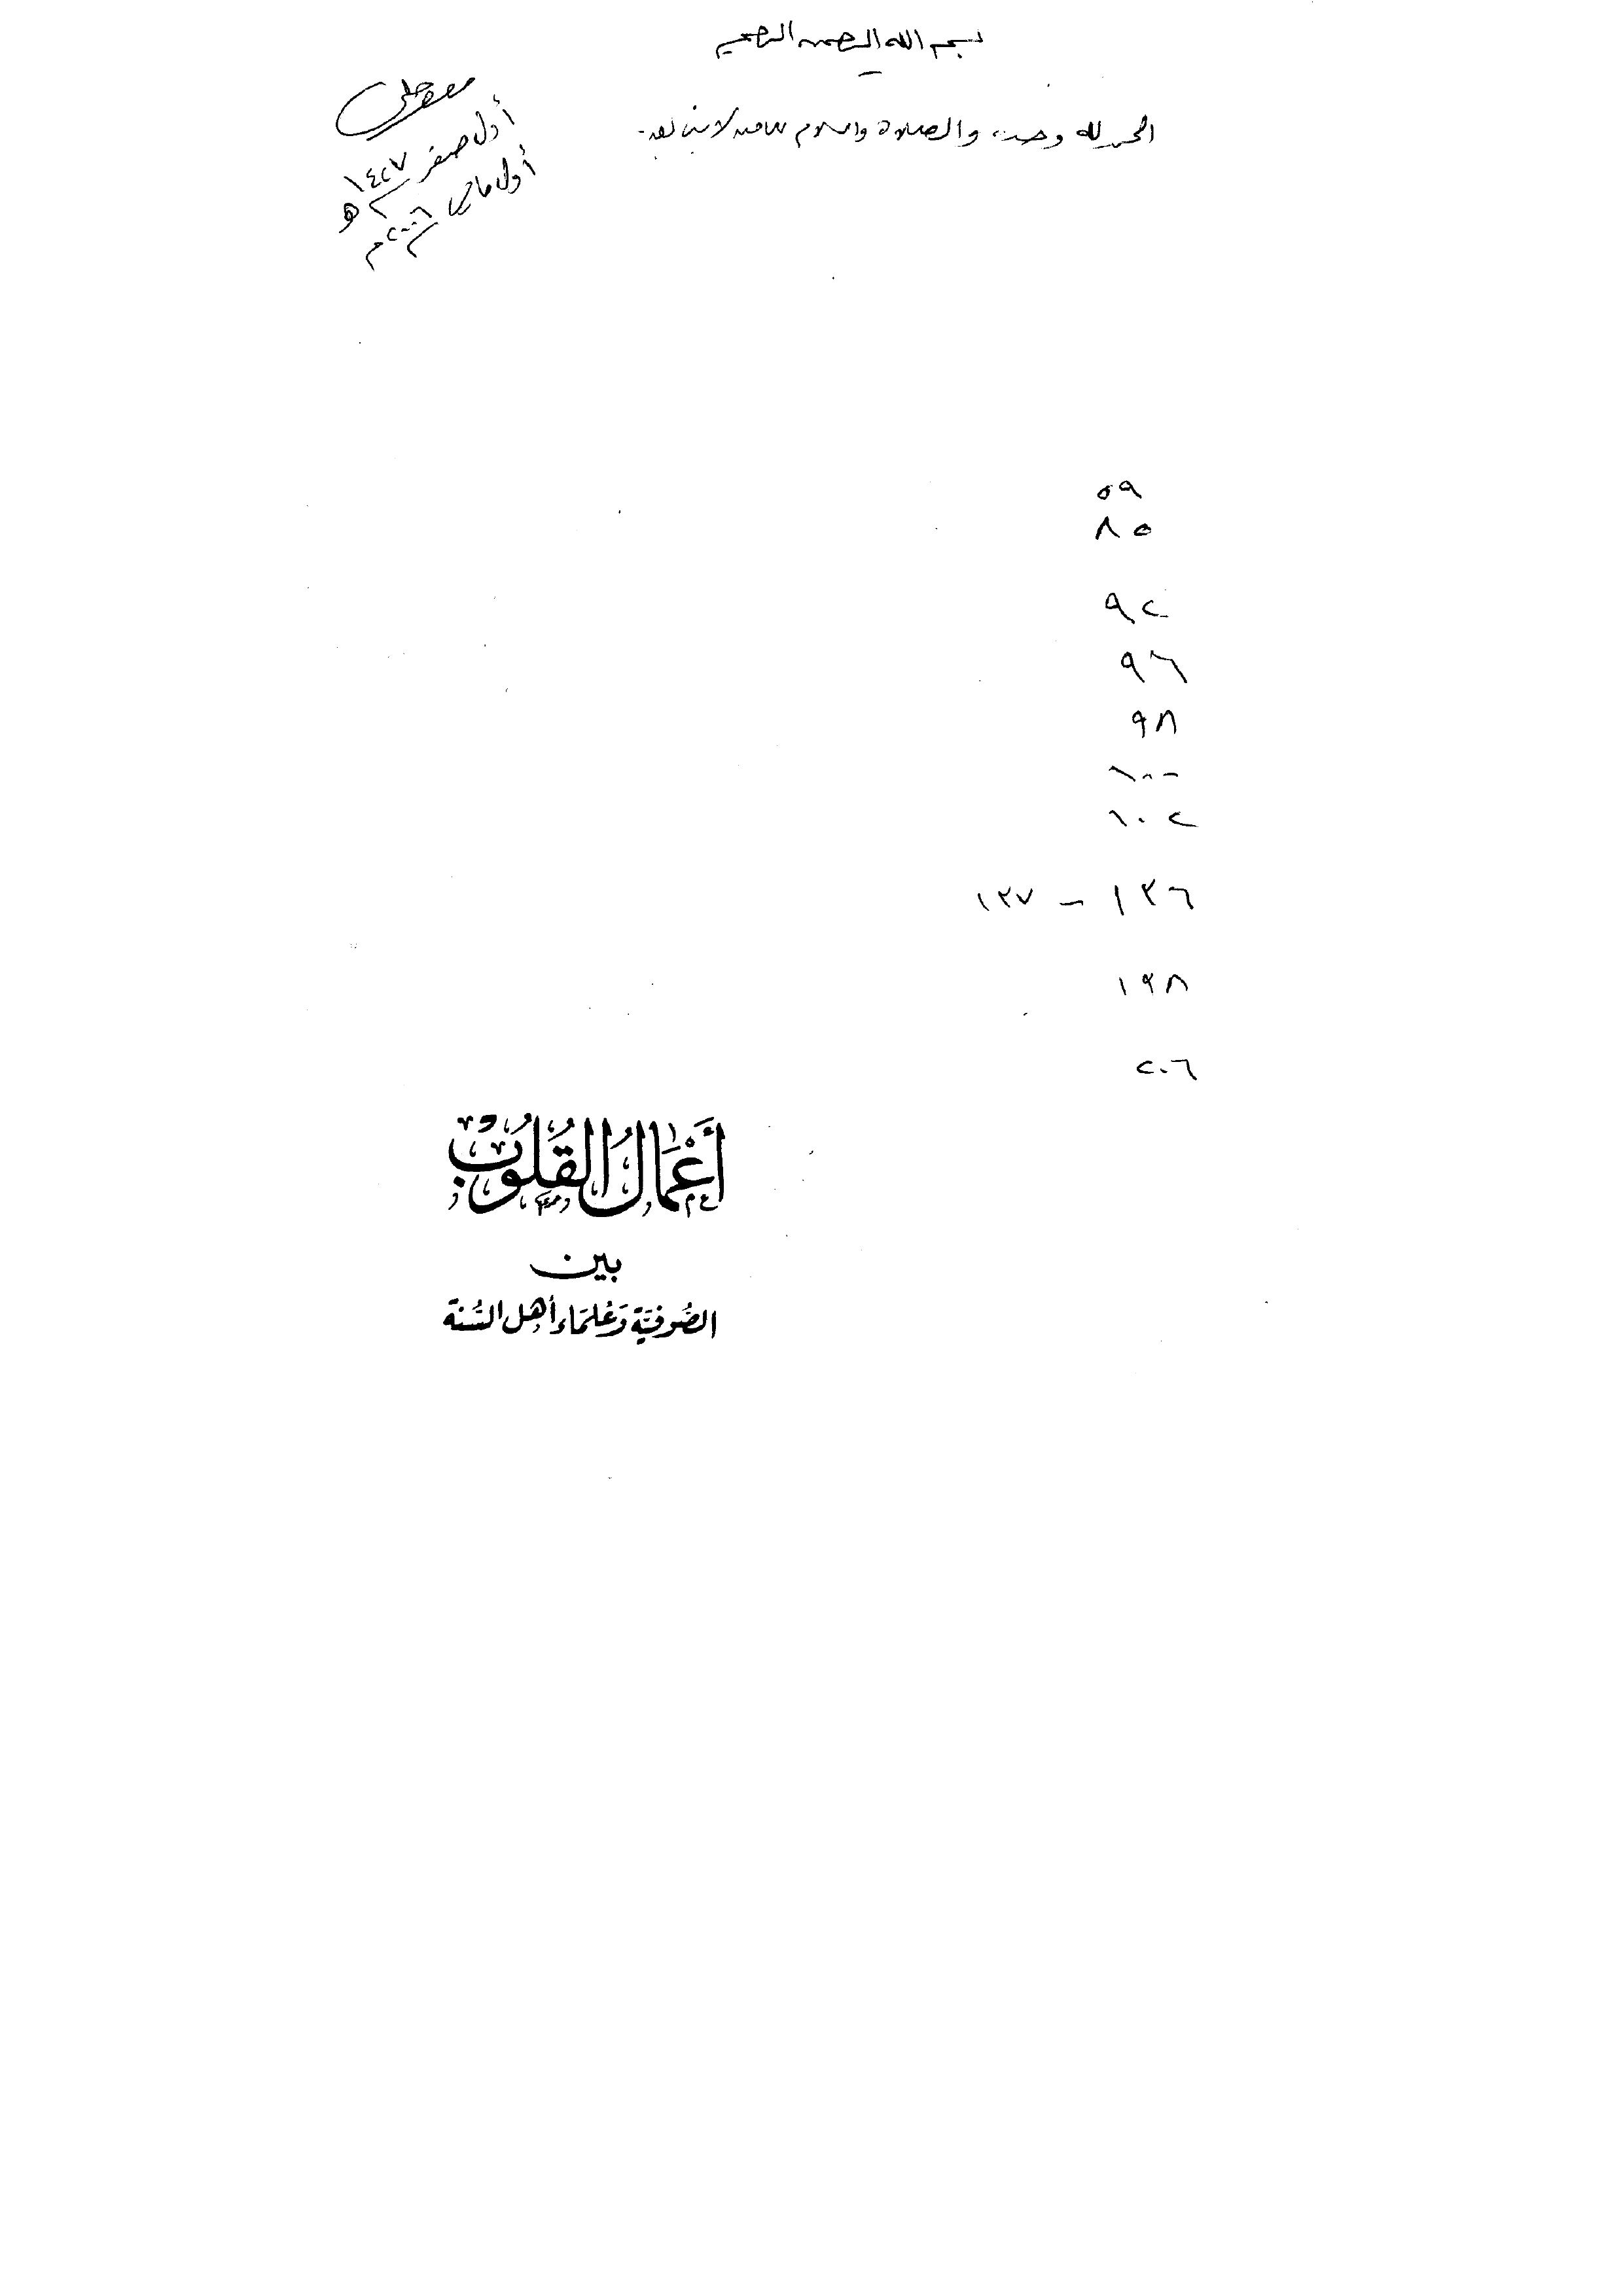 بسم الله الرحمن الرحيم
الحمد لله وحده، والصلاة والسلام على من لا نبي بعده.
أول صفر ١٤٢٧ هـ
أول مارس ٢٠٠٦ م
٥٩
٨٥
٩٢
٩٦
٩٨
١٠٠
١٠٢
١٣٦ - ١٣٧
١٩٨
٢٠٦
أَعْمَالُ القُلُوبِ
بين
الصُّوفيَّة وَعُلمَاء أهل السُّنة